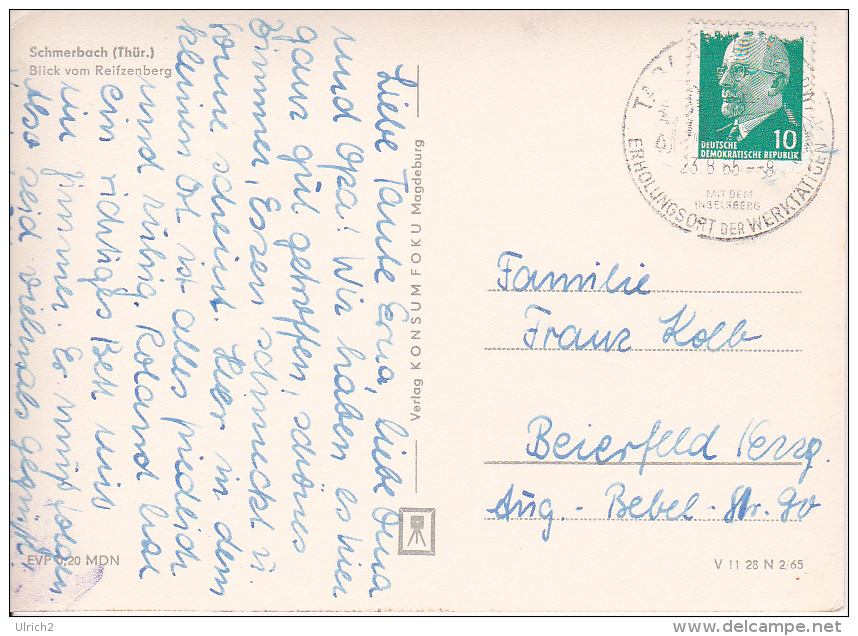 Schmerbach (Thür.)
Blick vom Reifzenberg
Liebe Tante Erna, liebe Oma
und Opa! Wir haben es hier
ganz gut getroffen, schönes
Zimmer, Essen schmeckt u.
Sonne scheint. Hier in dem
kleinen Ort ist alles friedlich
und ruhig. Roland hat
ein richtiges Bett mit
im Zimmer. Es muß folgen.
Also seid vielmals gegrüßt
EVP 0,20 MDN
Verlag KONSUM FOKU Magdeburg
TABARZ
23.8.65--8
MIT DEM
INSELSBERG
ERHOLUNGSORT DER WERKTÄTIGEN
10
DEUTSCHE
DEMOKRATISCHE REPUBLIK
Familie
Franz Kolb
Beierfeld /Erzg.
Aug.-Bebel-Str. 90
V 11 28 N 2/65
Ulrich2
delcampe.net